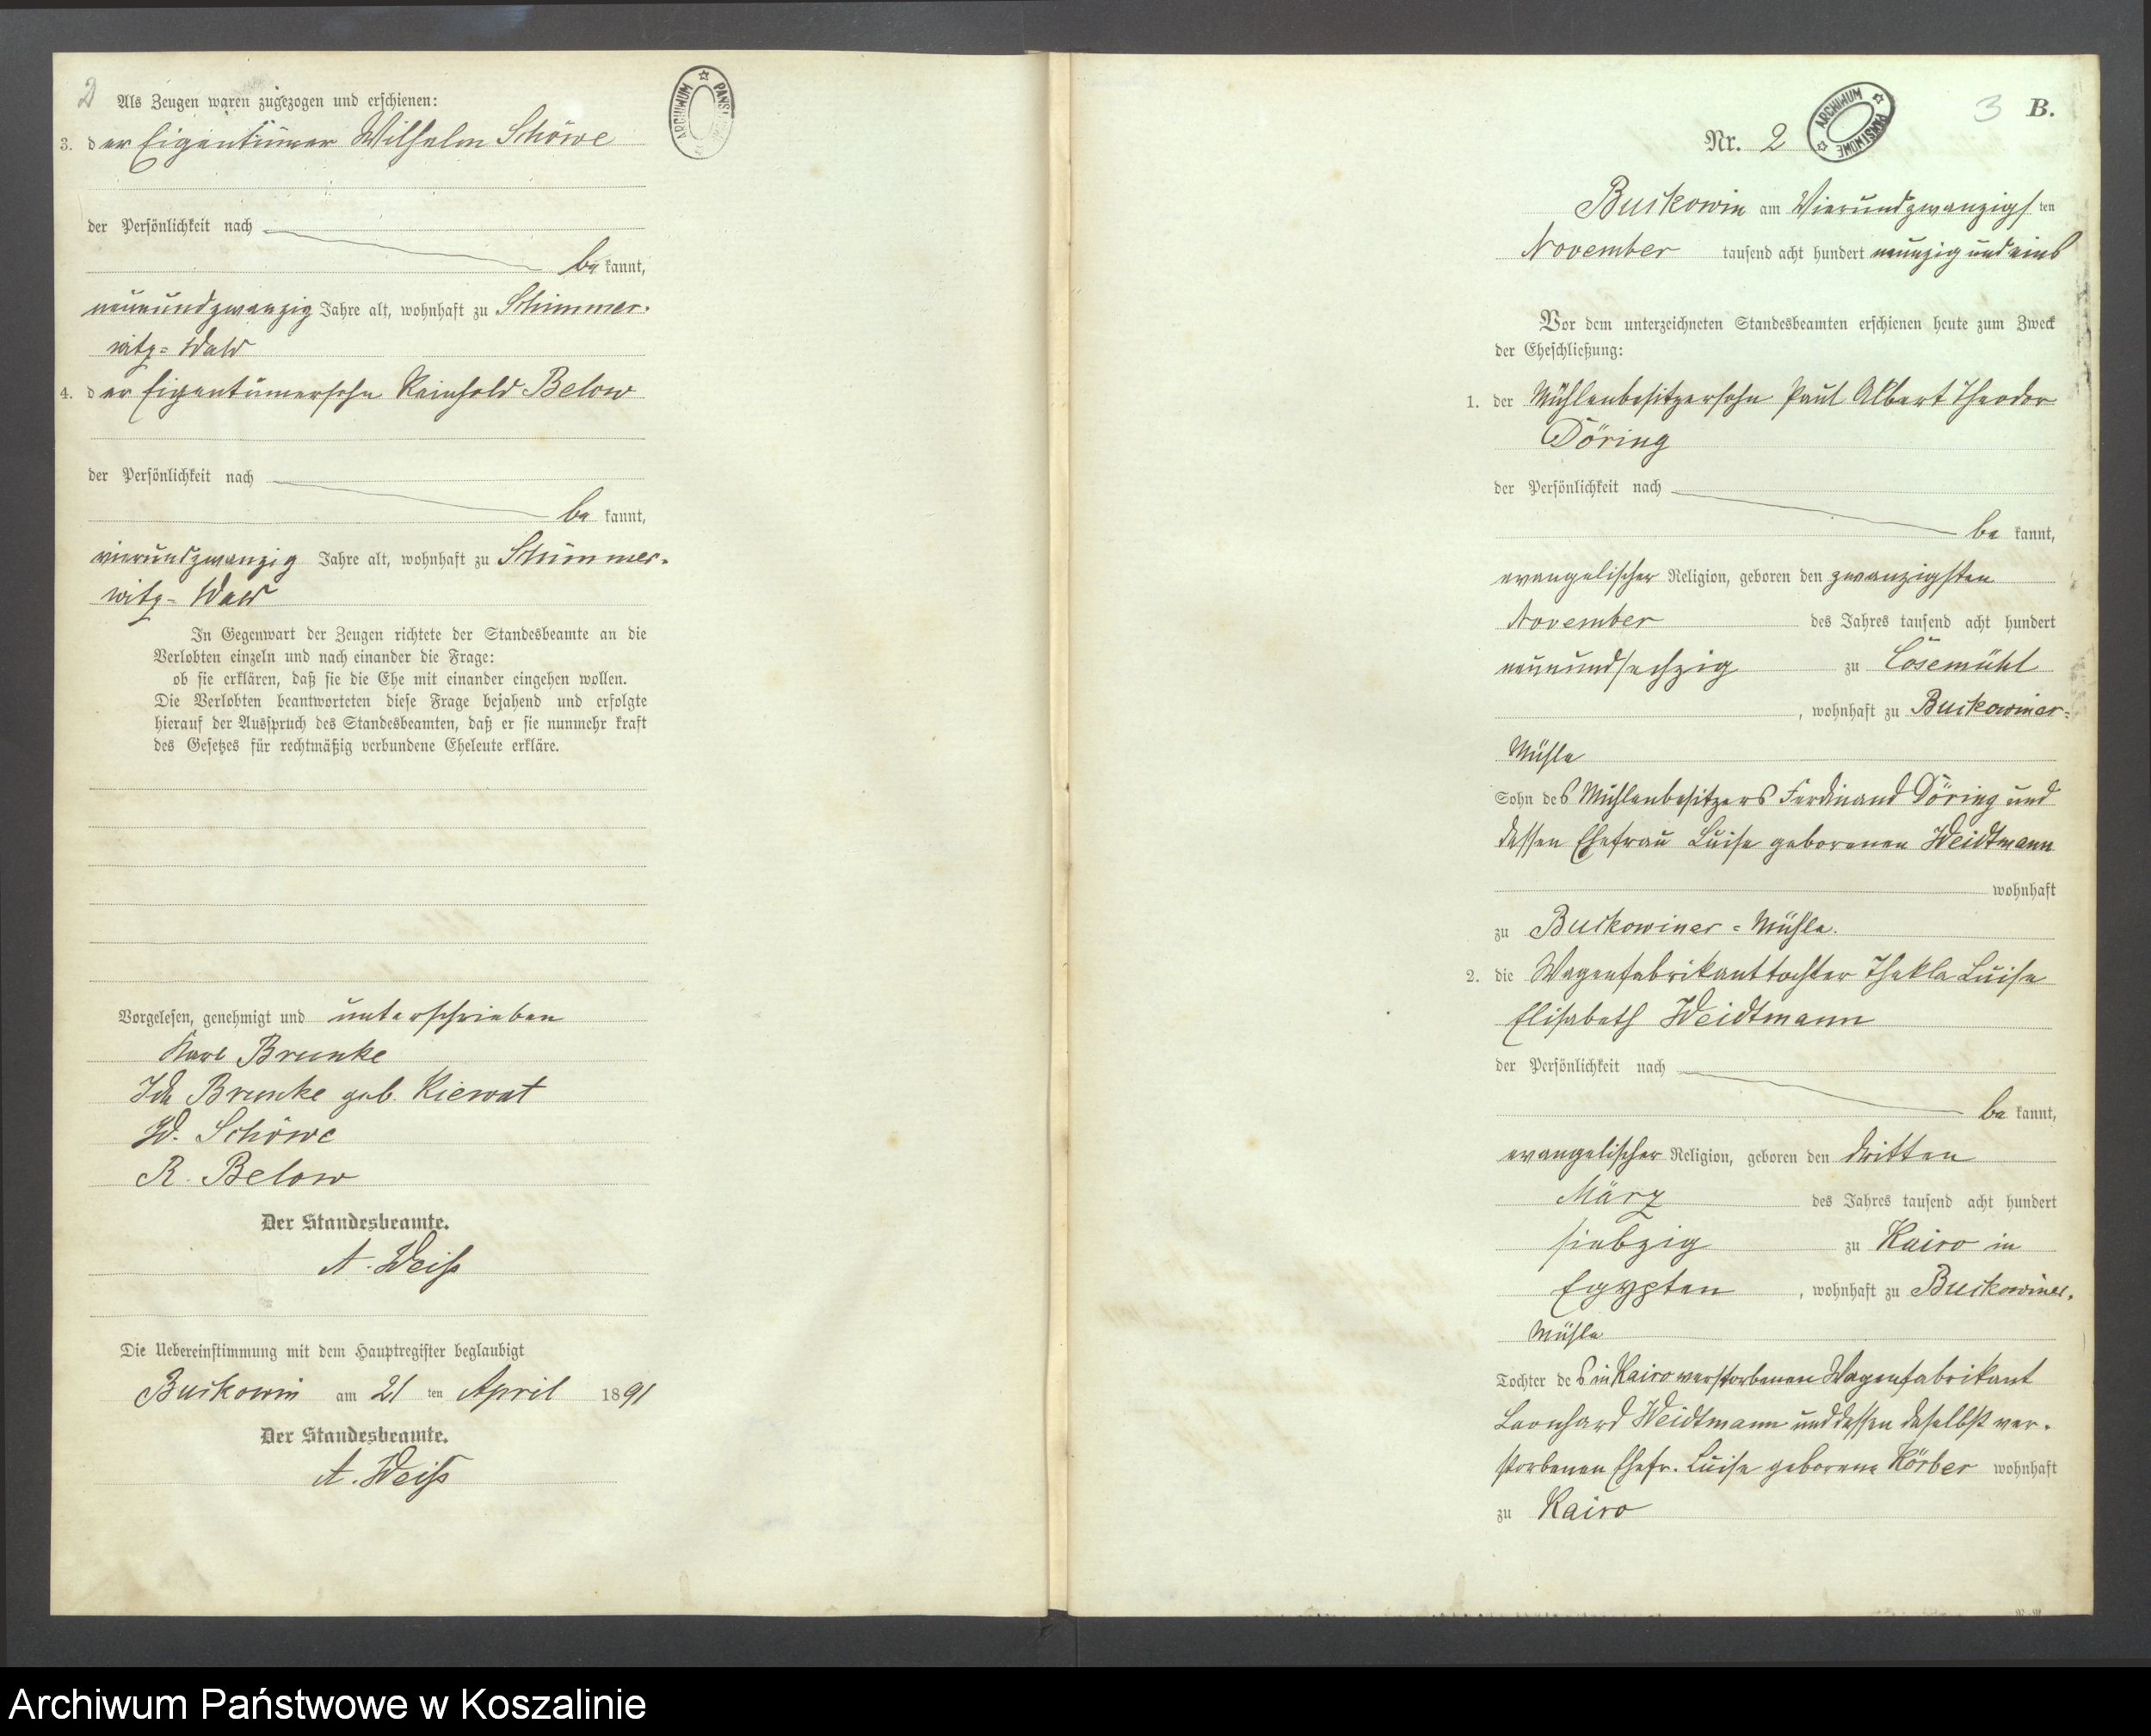 2
Als Zeugen waren zugezogen und erschienen:
ARCHIWUM PAŃSTWOWE
3. der Eigentümer Wilhelm Schöwe
der Persönlichkeit nach
bekannt,
neunundzwanzig Jahre alt, wohnhaft zu Schimmer-
witz-Wald
4. der Eigentümersohn Reinhold Below
der Persönlichkeit nach
bekannt,
vierundzwanzig Jahre alt, wohnhaft zu Schimmer-
witz-Wald
In Gegenwart der Zeugen richtete der Standesbeamte an die
Verlobten einzeln und nach einander die Frage:
ob sie erklären, daß sie die Ehe mit einander eingehen wollen.
Die Verlobten beantworteten diese Frage bejahend und erfolgte
hierauf der Ausspruch des Standesbeamten, daß er sie nunmehr kraft
des Gesetzes für rechtmäßig verbundene Eheleute erkläre.
Vorgelesen, genehmigt und unterschrieben
Karl Brunke
Ida Brunke geb. Kiewat
W. Schöwe
R. Below
Der Standesbeamte.
A. Weiß
Die Uebereinstimmung mit dem Hauptregister beglaubigt
Buckowin am 21 ten April 1891
Der Standesbeamte.
A. Weiß
3 B.
Nr. 2
ARCHIWUM PAŃSTWOWE
Buckowin am Vierundzwanzigsten
November tausend acht hundert neunzig und eins
Vor dem unterzeichneten Standesbeamten erschienen heute zum Zweck
der Eheschließung:
1. der Mühlenbesitzersohn Paul Albert Theodor
Döring
der Persönlichkeit nach
bekannt,
evangelischer Religion, geboren den zwanzigsten
November des Jahres tausend acht hundert
neunundsechzig zu Cösemühl
, wohnhaft zu Buckowiner-
Mühle
Sohn des Mühlenbesitzers Ferdinand Döring und
dessen Ehefrau Luise geborenen Weidtmann
wohnhaft
zu Buckowiner-Mühle.
2. die Wagenfabrikanttochter Thekla Luise
Elisabeth Weidtmann
der Persönlichkeit nach
bekannt,
evangelischer Religion, geboren den dritten
März des Jahres tausend acht hundert
siebzig zu Kairo in
Egypten, wohnhaft zu Buckowiner-
Mühle
Tochter des in Kairo verstorbenen Wagenfabrikant
Leonhard Weidtmann und dessen daselbst ver-
storbenen Ehefr. Luise geborene Körber wohnhaft
zu Kairo
Archiwum Państwowe w Koszalinie